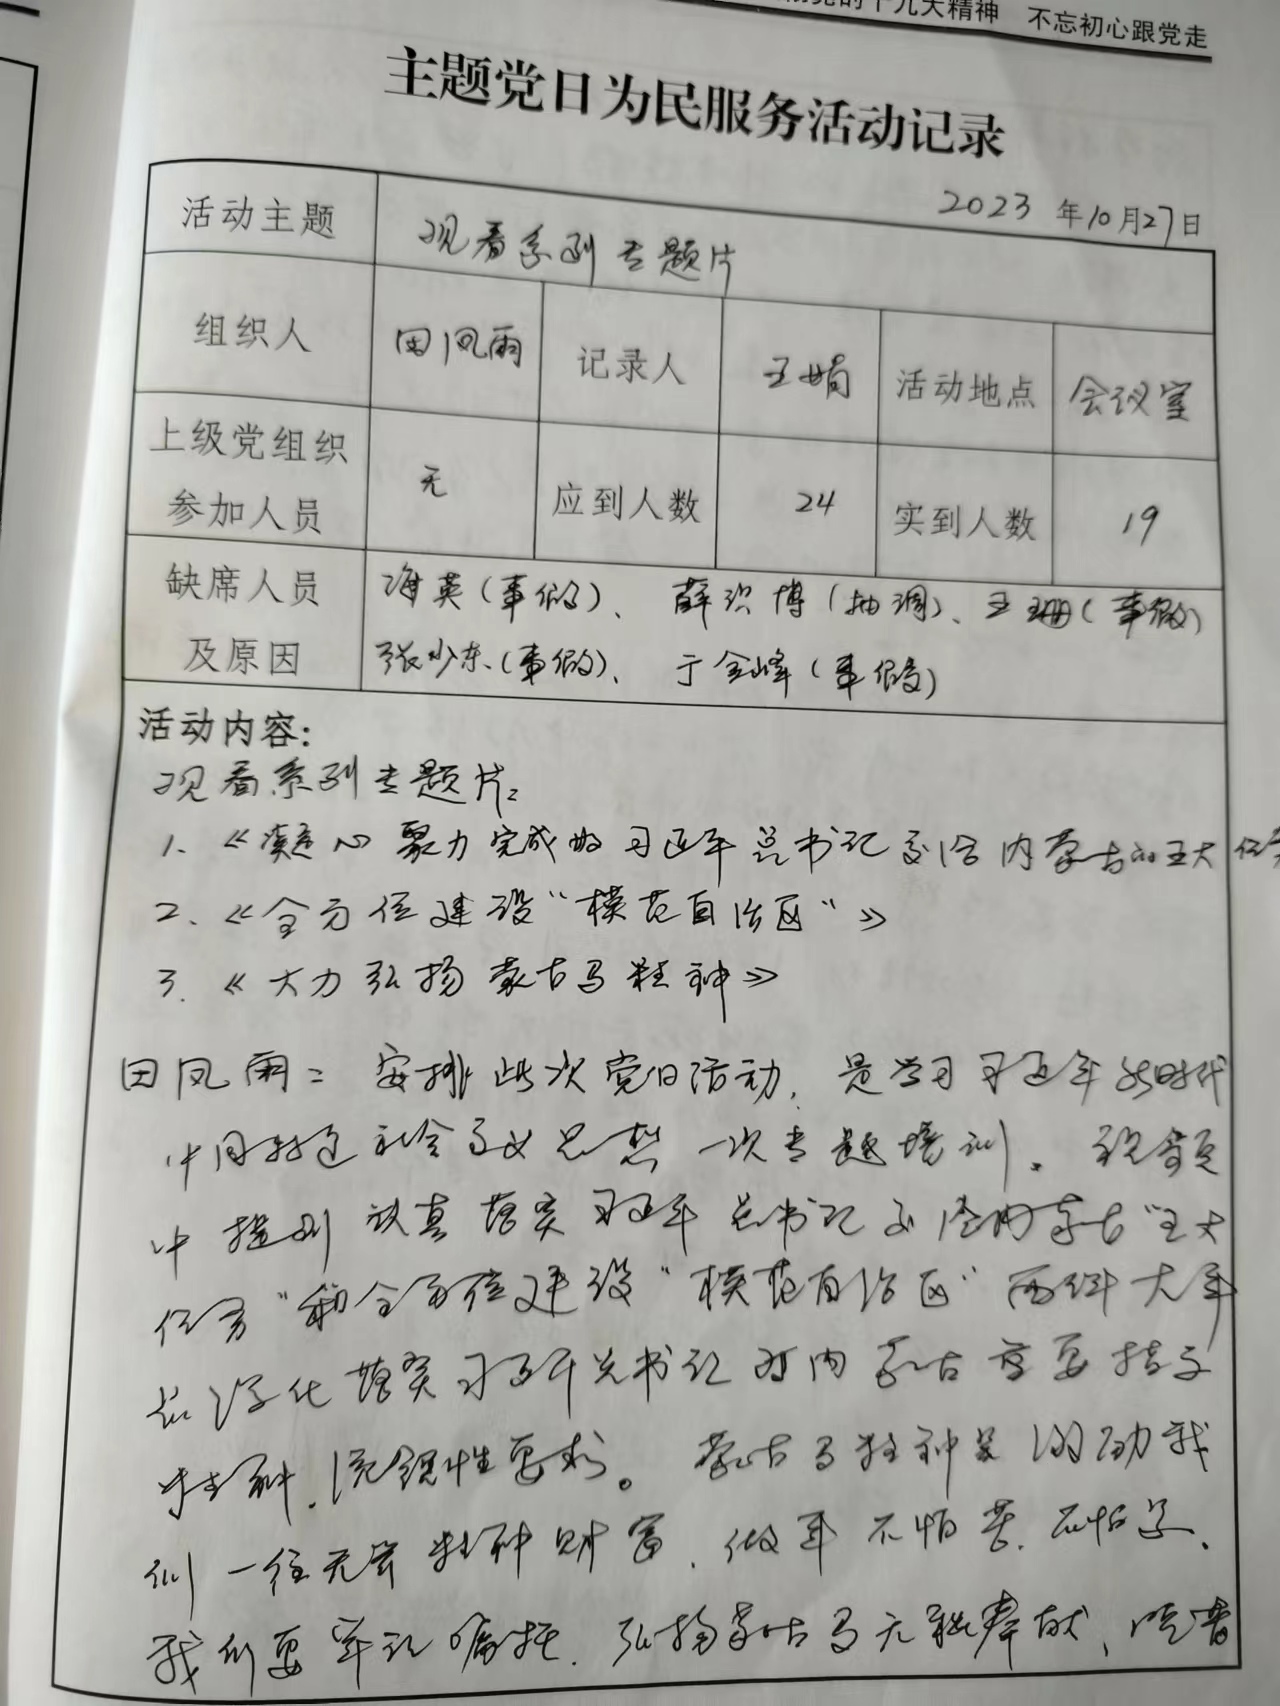 的十九大精神 不忘初心跟党走
主题党日为民服务活动记录
2023 年10月27日
活动主题 观看系列专题片
组织人 田凤雨 记录人 王娟 活动地点 会议室
上级党组织
参加人员 无 应到人数 24 实到人数 19
缺席人员 海英(事假)、薛洪博(抽调)、王珊(事假)
及原因 张少东(事假)、于金峰(事假)
活动内容:
观看系列专题片:
1、《凝心聚力完成好习近平总书记交给内蒙古的五大任务
2、《全方位建设“模范自治区”》
3.《大力弘扬蒙古马精神》
田凤雨: 安排此次党日活动, 是学习习近平新时代
中国特色社会主义思想一次专题培训。
中提到认真落实习近平总书记交给内蒙古“五大
任务”和全方位建设“模范自治区”两件大事
深化落实习近平总书记对内蒙古重要指示
精神, 统领性要求。蒙古马精神是激励我
们一往无前精神财富, 做事不怕苦、不怕
我们要牢记嘱托, 弘扬蒙古马无私奉献、